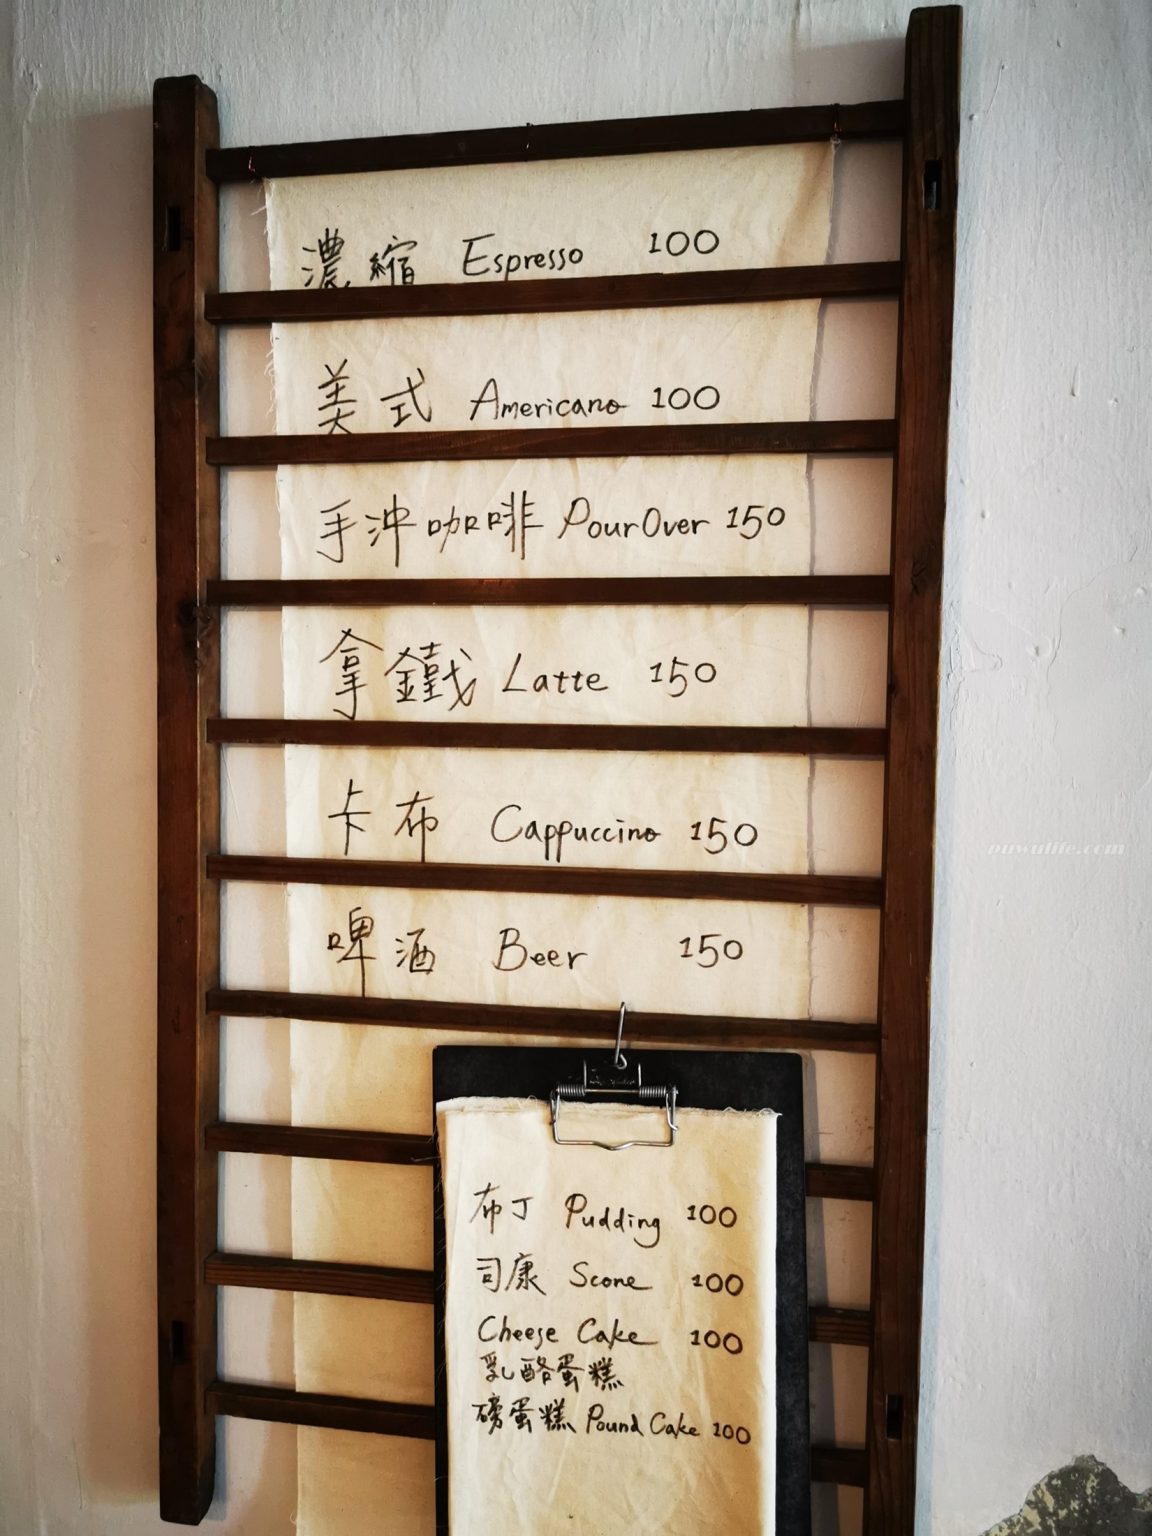 濃縮 Espresso 100
美式 Americano 100
手沖咖啡 PourOver 150
拿鐵 Latte 150
卡布 Cappuccino 150
啤酒 Beer 150
布丁 Pudding 100
司康 Scone 100
Cheese Cake 100
乳酪蛋糕
磅蛋糕 Pound Cake 100
ouwulife.com